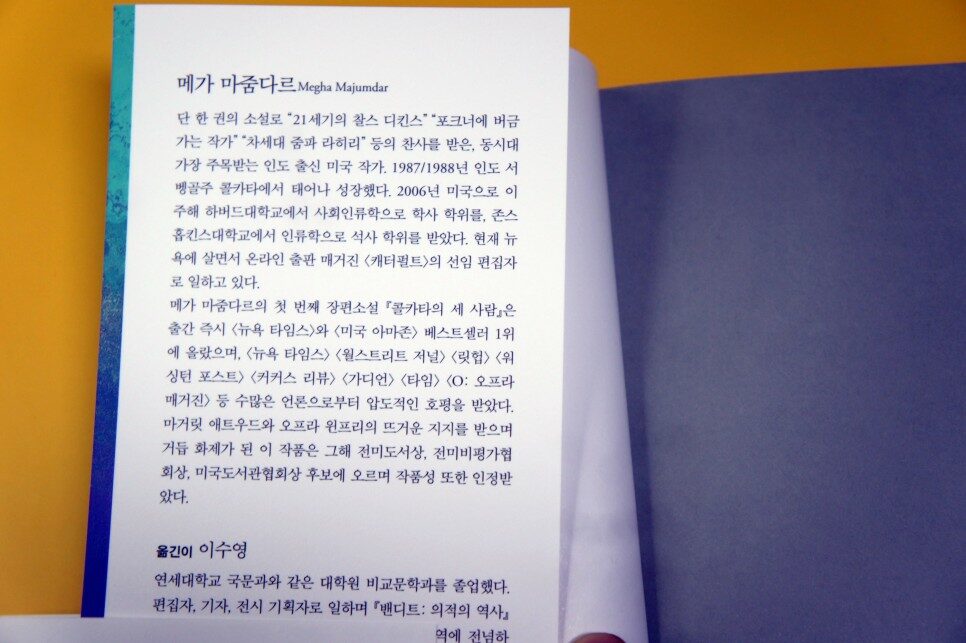 메가 마줌다르 Megha Majumdar
단 한 권의 소설로 “21세기의 찰스 디킨스” “포크너에 버금
가는 작가” “차세대 줌파 라히리” 등의 찬사를 받은, 동시대
가장 주목받는 인도 출신 미국 작가. 1987/1988년 인도 서
벵골주 콜카타에서 태어나 성장했다. 2006년 미국으로 이
주해 하버드대학교에서 사회인류학으로 학사 학위를, 존스
홉킨스대학교에서 인류학으로 석사 학위를 받았다. 현재 뉴
욕에 살면서 온라인 출판 매거진 〈캐터펄트〉의 선임 편집자
로 일하고 있다.
메가 마줌다르의 첫 번째 장편소설 『콜카타의 세 사람』은
출간 즉시 〈뉴욕 타임스〉와 〈미국 아마존〉 베스트셀러 1위
에 올랐으며, 〈뉴욕 타임스〉 〈월스트리트 저널〉 〈릿헙〉 〈워
싱턴 포스트〉 〈커커스 리뷰〉 〈가디언〉 〈타임〉 〈O: 오프라
매거진〉 등 수많은 언론으로부터 압도적인 호평을 받았다.
마거릿 애트우드와 오프라 윈프리의 뜨거운 지지를 받으며
거듭 화제가 된 이 작품은 그해 전미도서상, 전미비평가협
회상, 미국도서관협회상 후보에 오르며 작품성 또한 인정받
았다.
옮긴이 이수영
연세대학교 국문과와 같은 대학원 비교문학과를 졸업했다.
편집자, 기자, 전시 기획자로 일하며 『밴디트: 의적의 역사』
역에 전념하